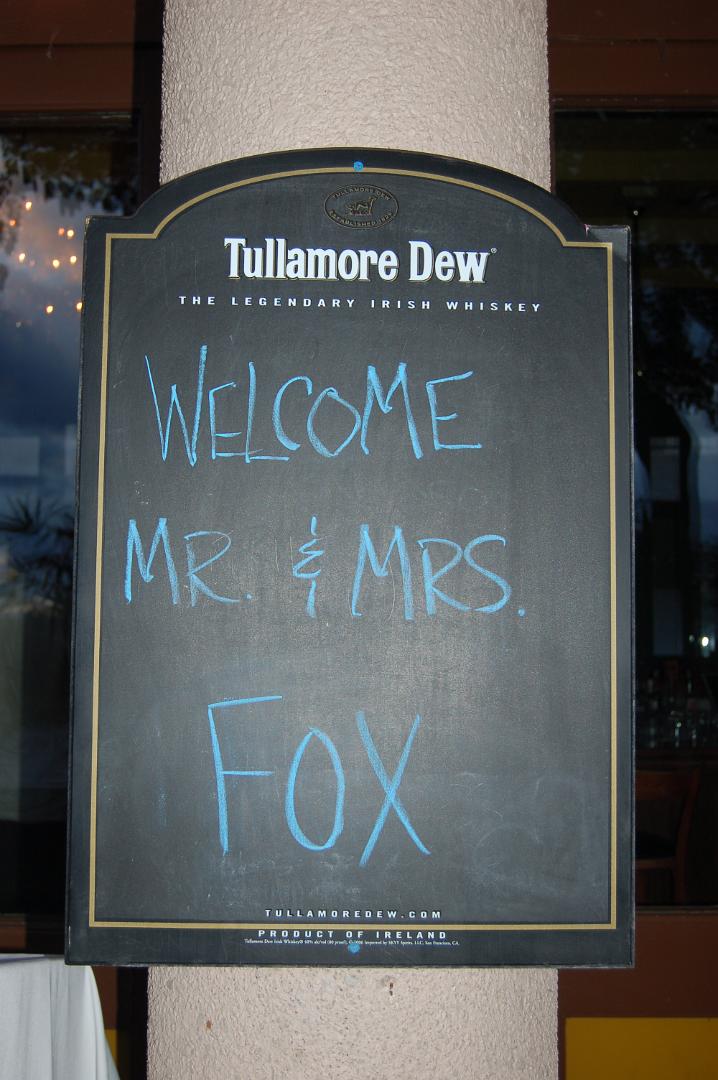 TULLAMORE DEW
ESTABLISHED 1829
Tullamore Dew®
THE LEGENDARY IRISH WHISKEY
WELCOME
MR. & MRS.
FOX
TULLAMOREDEW.COM
PRODUCT OF IRELAND
Tullamore Dew Irish Whiskey® 40% alc/vol (80 proof). © 2006 Imported by SKYY Spirits, LLC, San Francisco, CA.